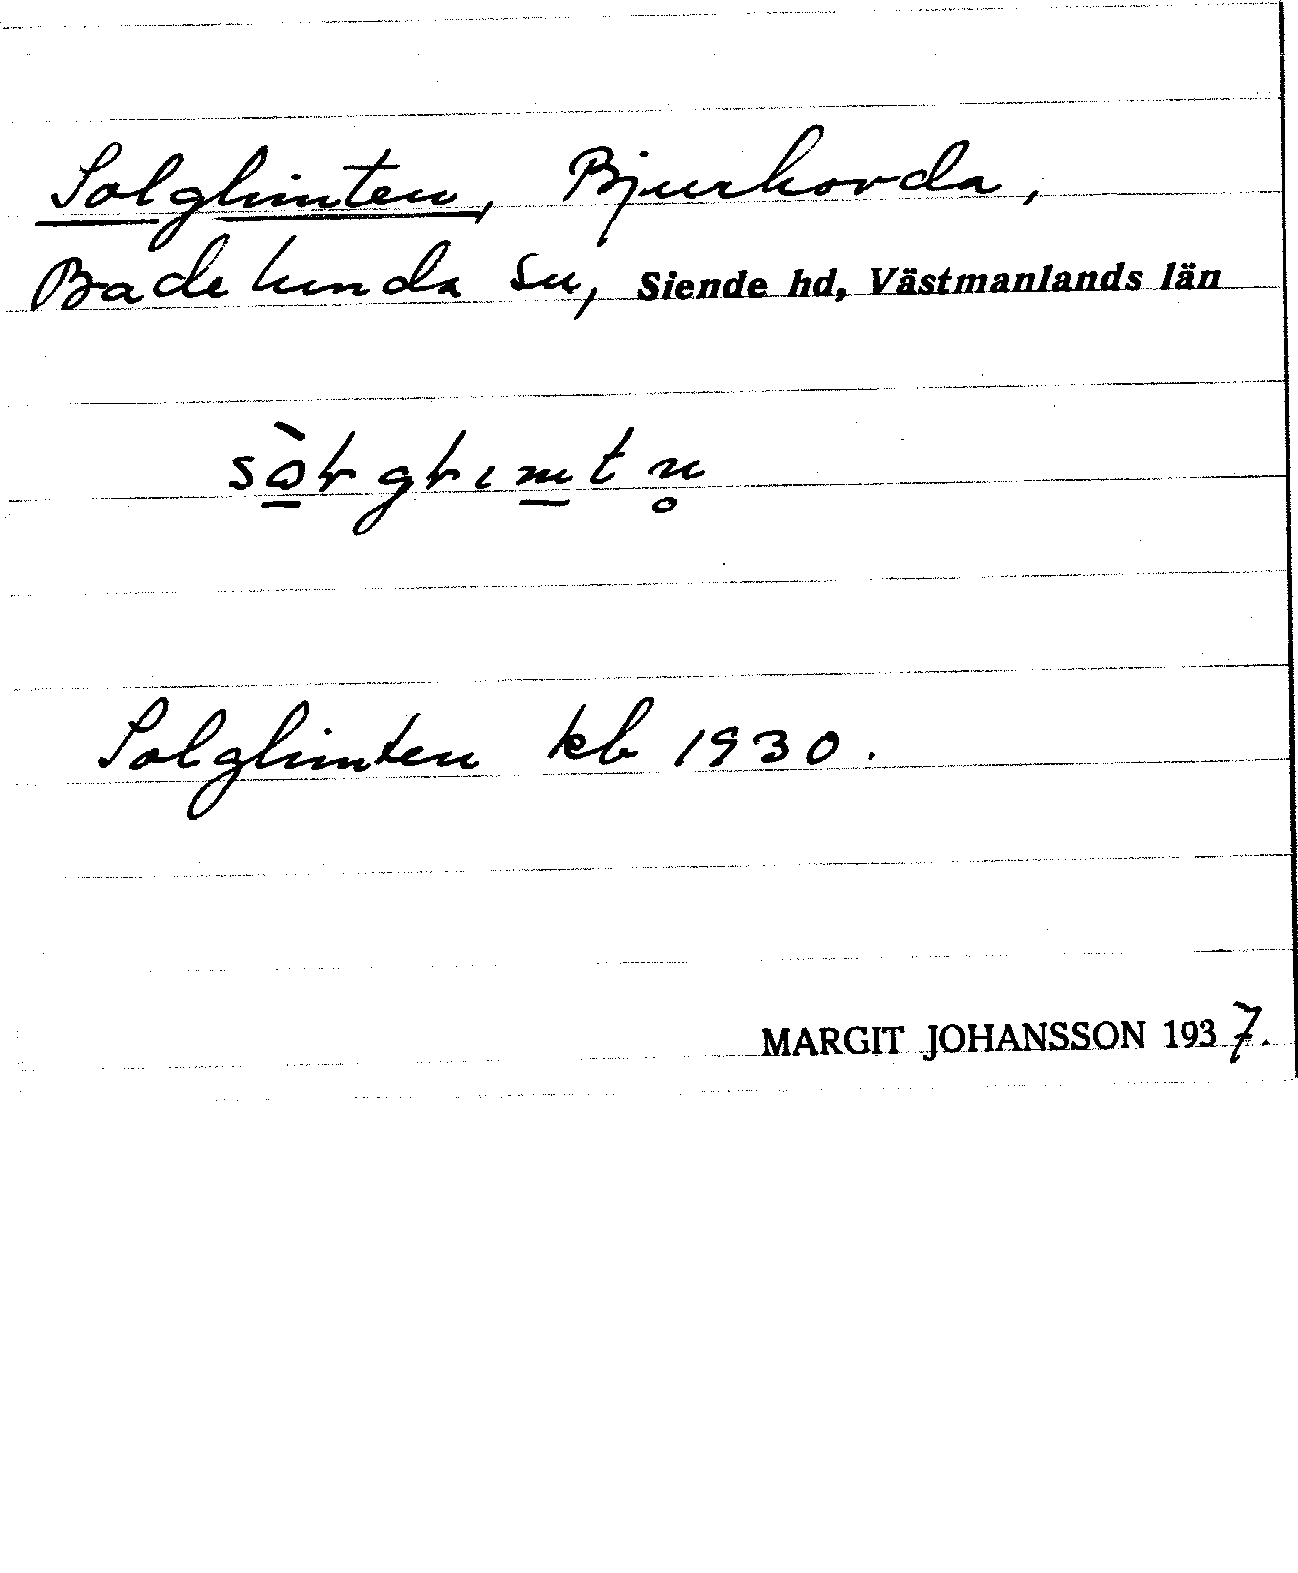 Solglimten, Bjurhovda,
Badelunda sn, Siende hd, Västmanlands län
sò̱ƚgƚım̱tn̥
Solglimten kb 1930.
MARGIT JOHANSSON 1937.